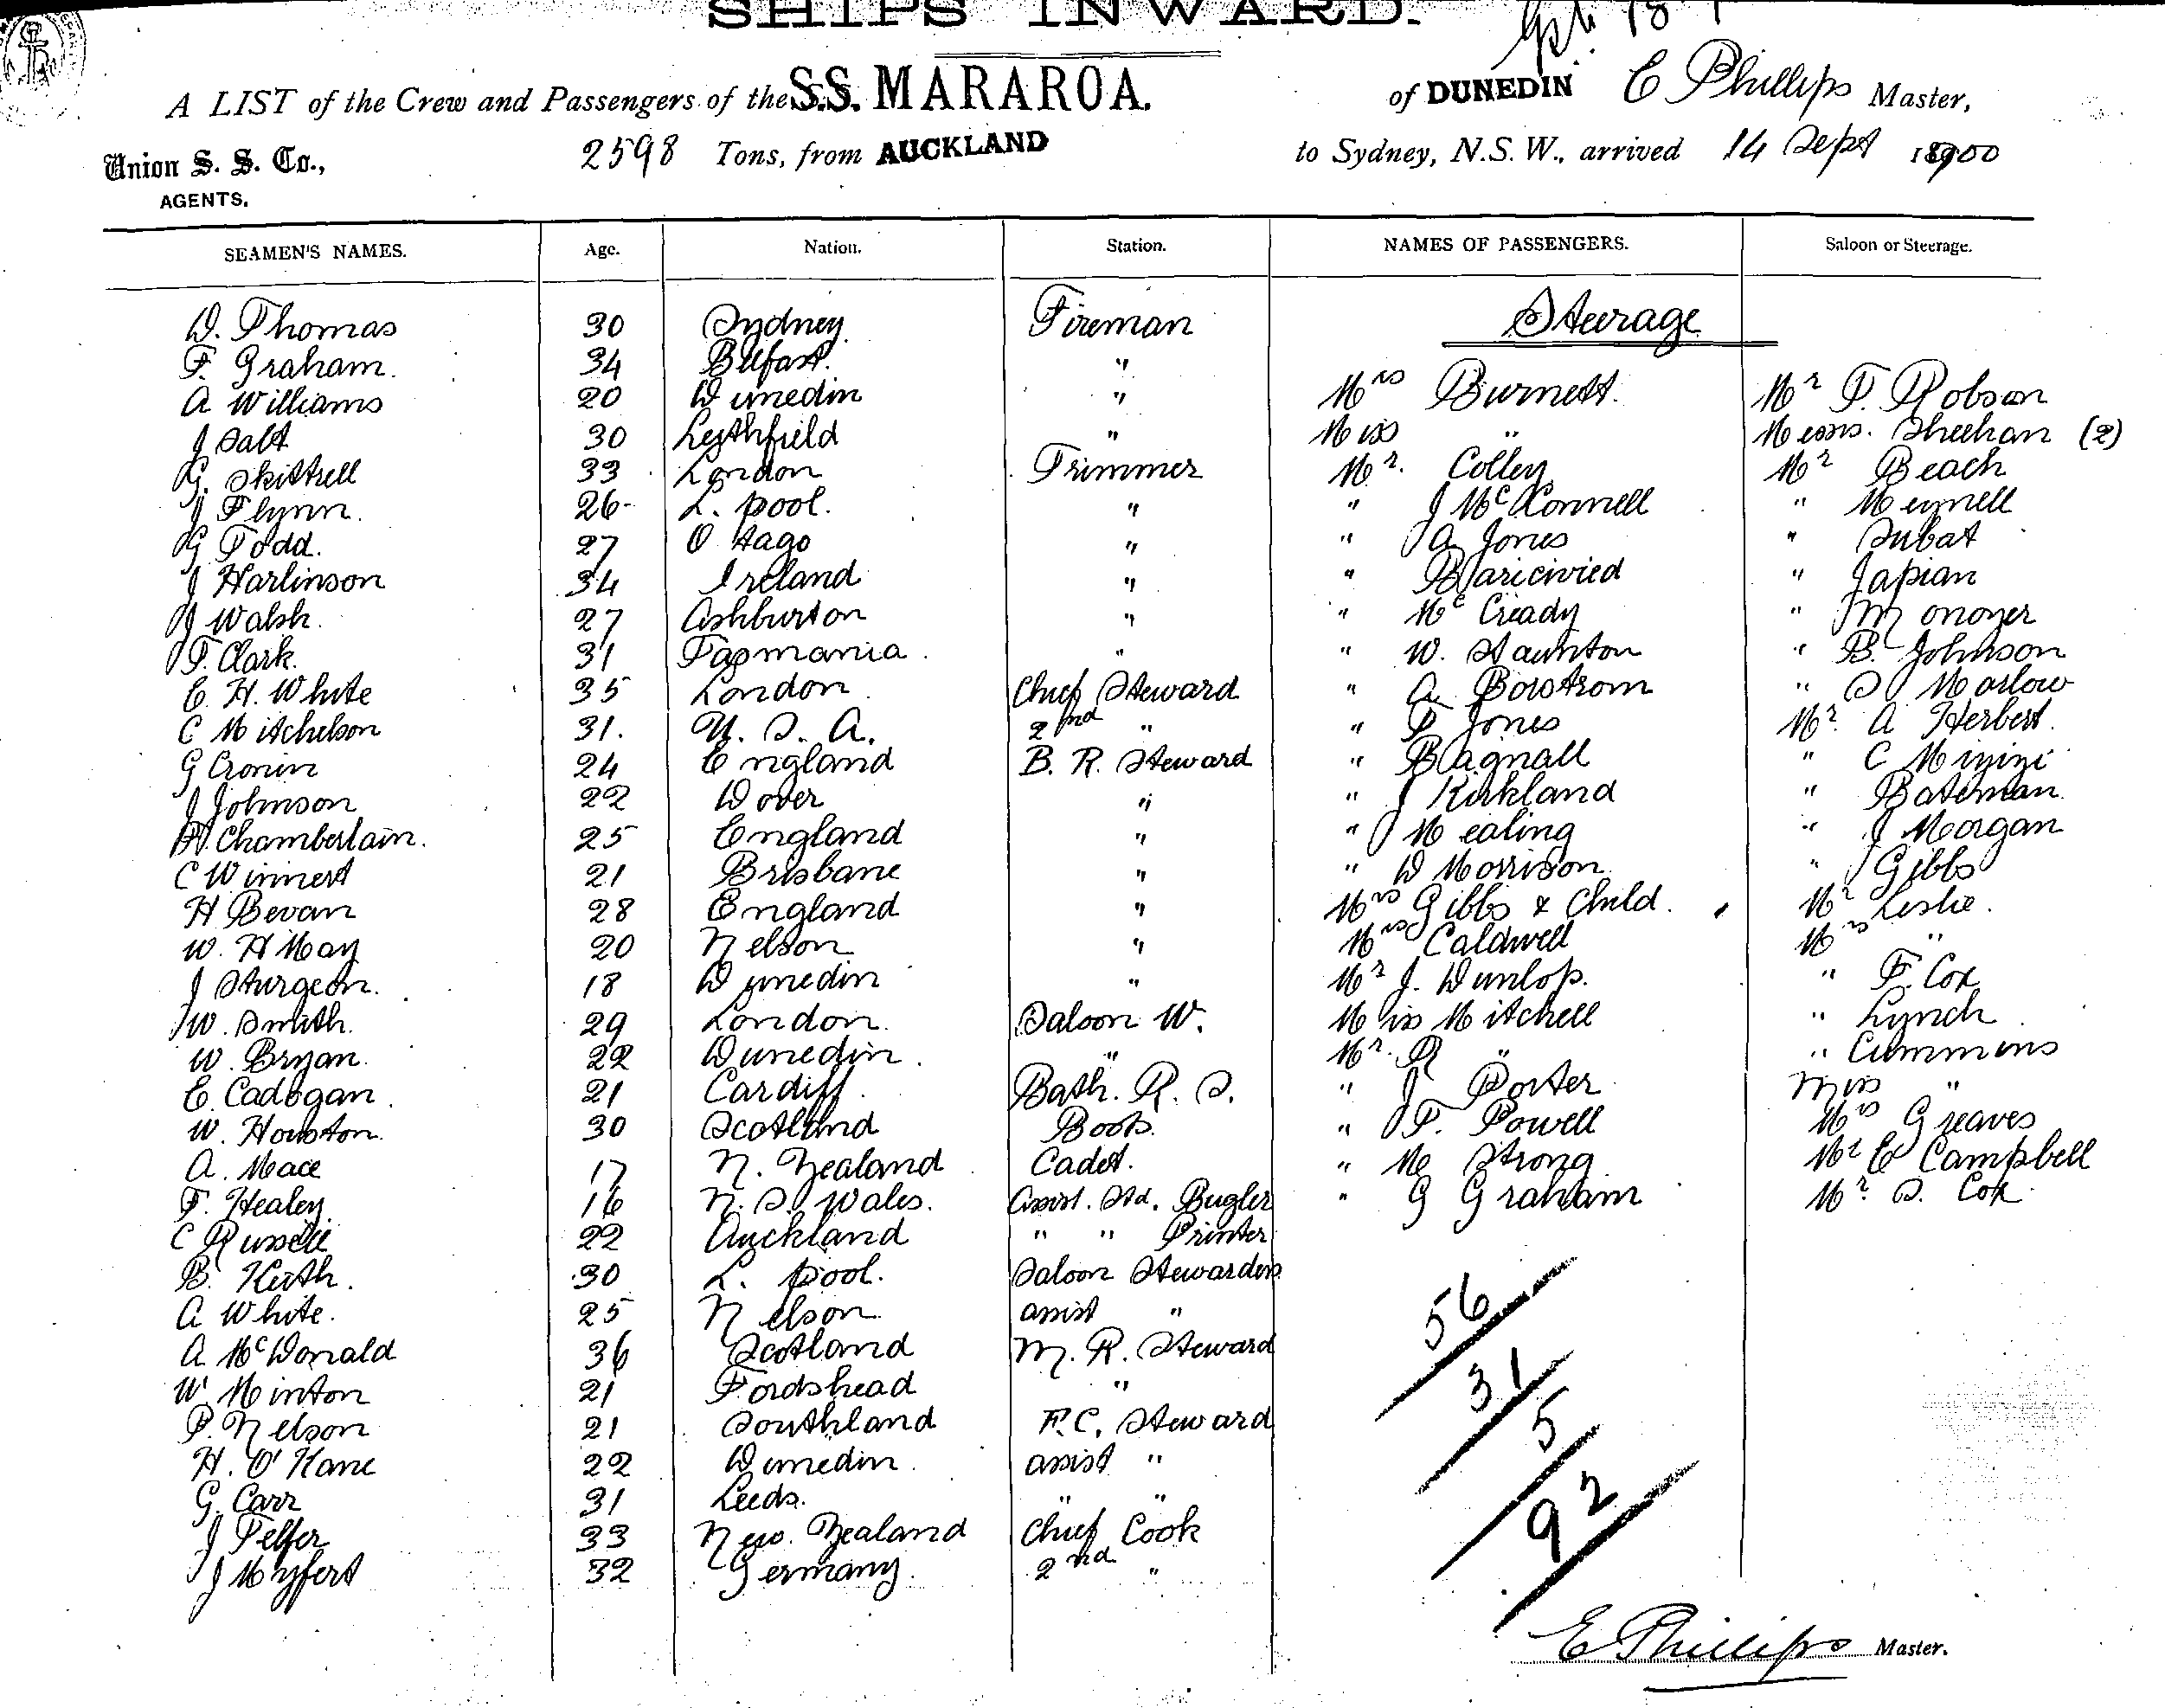 SHIPS INWARD.
A LIST of the Crew and Passengers of the S.S. MARAROA. of DUNEDIN E Phillips Master,
Union S. S. Co., 2598 Tons, from AUCKLAND to Sydney, N.S.W., arrived 14 Sept 1900
AGENTS.
SEAMEN'S NAMES. Age. Nation. Station. NAMES OF PASSENGERS. Saloon or Steerage.
D. Thomas 30 Sydney Fireman Steerage
F. Graham. 34 Belfast. "
A Williams 20 Dunedin " Mrs Burnett. Mr T. Robson
J Salt 30 Leithfield " Miss " Messrs. Sheehan (2)
G. Skittrell 33 London Trimmer Mr. Colley Mr Beach
J Flynn. 26 L. pool. " " J McConnell " Meynell
G Todd. 27 Otago " " A Jones " Subat
J Harlinson 34 Ireland " " " Japian
J Walsh. 27 Ashburton " " McCready " Monoyer
T. Clark. 31 Tasmania. " " W. Staunton " B. Johnson
E. H. White 35 London Chief Steward " A Bostrom " S Marlow
C Mitchelson 31. U. S. A. 2nd " " Jones Mr. A Herbert.
G Cronin 24 England B. R. Steward " Bagnall " C
J Johnson 22 Dover " " J Kirkland " Bateman
Chamberlain. 25 England " " Mealing " J Morgan
C Winnert 21 Brisbane " " D Morrison " Gibbs
H Bevan 28 England " Mrs Gibbs & Child. Mr Leslie.
W. H May 20 Nelson " Mrs Caldwell Mrs "
J Sturgeon. 18 Dunedin " Mr J. Dunlop. " F. Cox
W. Smith. 29 London. Saloon W. Miss Mitchell " Lynch
W. Bryan. 22 Dunedin. " Mr. R " " Cummins
E. Cadogan. 21 Cardiff. Bath. R. S. " J Porter Miss "
W. Houston. 30 Scotland Boots. " T. Powell Mrs Greaves
A. Mace 17 N. Zealand Cadet. " M Strong Mr E Campbell
F. Healey 16 N. S. Wales. Assist. Std. Bugler " G Graham Mr. S. Cox.
C Russell 22 Auckland " " Printer
B. Keith. 30 L. pool. Saloon Stewardess
A White. 25 Nelson assist "
A McDonald 36 Scotland M. R. Steward 56
W Minton 21 Fordshead " 31
P. Nelson 21 Southland F.C. Steward 5
H. O'Kane 22 Dunedin. assist "
G. Carr 31 Leeds. " " 92
J Telfer 33 New. Zealand Chief Cook
J 32 Germany. 2nd "
E Phillips Master.